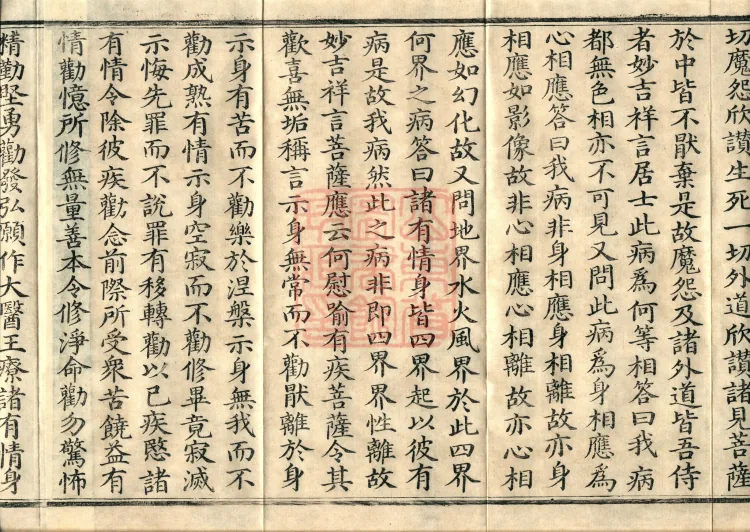 切魔怨欣讃生死一切外道欣讃諸見菩薩
於中皆不猒棄是故魔怨及諸外道皆吾侍
者妙吉祥言居士此病爲何等相答曰我病
都無色相亦不可見又問此病爲身相應爲
心相應答曰我病非身相應身相離故亦身
相應如影像故非心相應心相離故亦心相
應如幻化故又問地界水火風界於此四界
何界之病答曰諸有情身皆四界起以彼有
病是故我病然此之病非即四界界性離故
妙吉祥言菩薩應云何慰喻有疾菩薩令其
歡喜無垢稱言示身無常而不勸猒離於身
示身有苦而不勸樂於涅槃示身無我而不
勸成熟有情示身空寂而不勸修畢竟寂滅
示悔先罪而不說罪有移轉勸以己疾愍諸
有情令除彼疾勸念前際所受衆苦饒益有
情勸憶所修無量善本令修淨命勸勿驚怖
精勤堅勇勸發弘願作大醫王療諸有情身